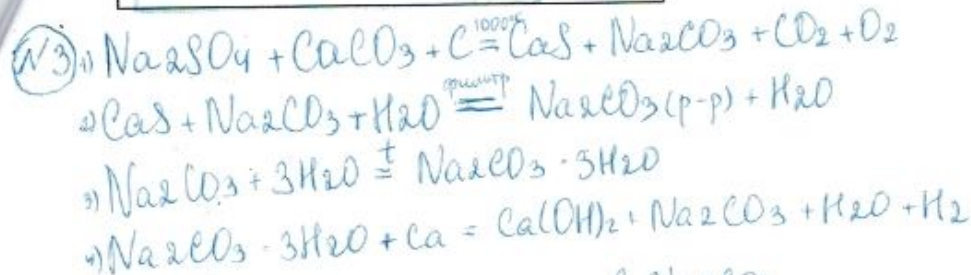 N3 1) Na2SO4 + CaCO3 + C 1000°C = CaS + Na2CO3 + CO2 + O2
2) CaS + Na2CO3 + H2O фильтр = Na2CO3 (р-р) + H2O
3) Na2CO3 + 3H2O t = Na2CO3 · 3H2O
4) Na2CO3 · 3H2O + Ca = Ca(OH)2 + Na2CO3 + H2O + H2